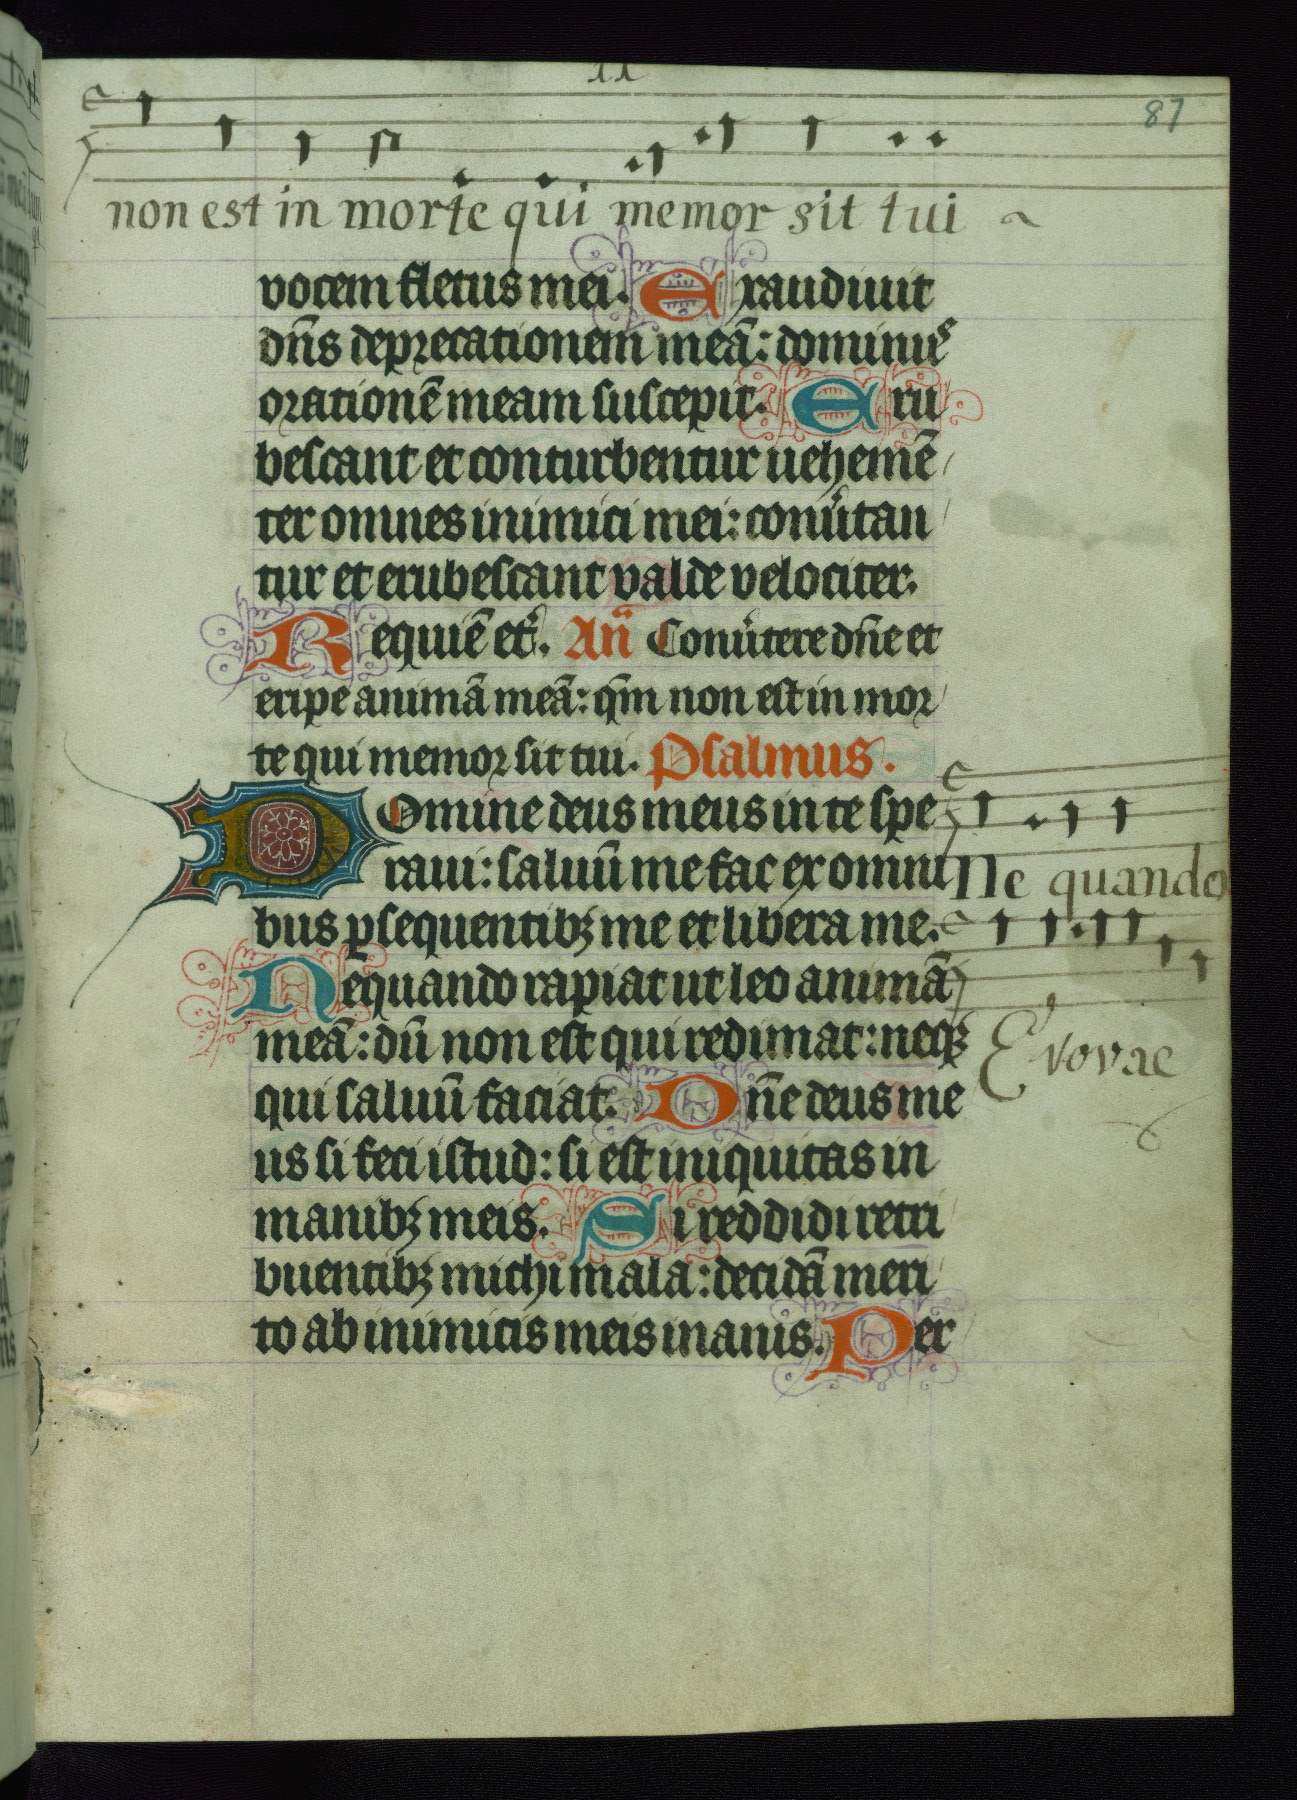 87
non est in morte qui memor sit tui
vocem fletus mei. Exaudiuit
dn̄s deprecationem meā: dominus
orationē meam suscepit. Eru
bescant et conturbentur uehemē
ter omnes inimici mei: conu̾tan
tur et erubescant valde velociter.
Requiē et̾. An̄ Conu̾tere dn̄e et
eripe animā meā: qm̄ non est in mor
te qui memor sit tui. Psalmus.
Domine deus meus in te spe
raui: saluū me fac ex omni
bus ꝑsequentibꝫ me et libera me.
Ne quando
Ne quando rapiat ut leo animā
meā: dū non est qui redimat: neqꝫ
Evovae
qui saluū faciat. Dn̄e deus me
us si feci istud: si est iniquitas in
manibꝫ meis. Si reddidi retri
buentibꝫ michi mala: decidā meri
to ab inimicis meis inanis. Per